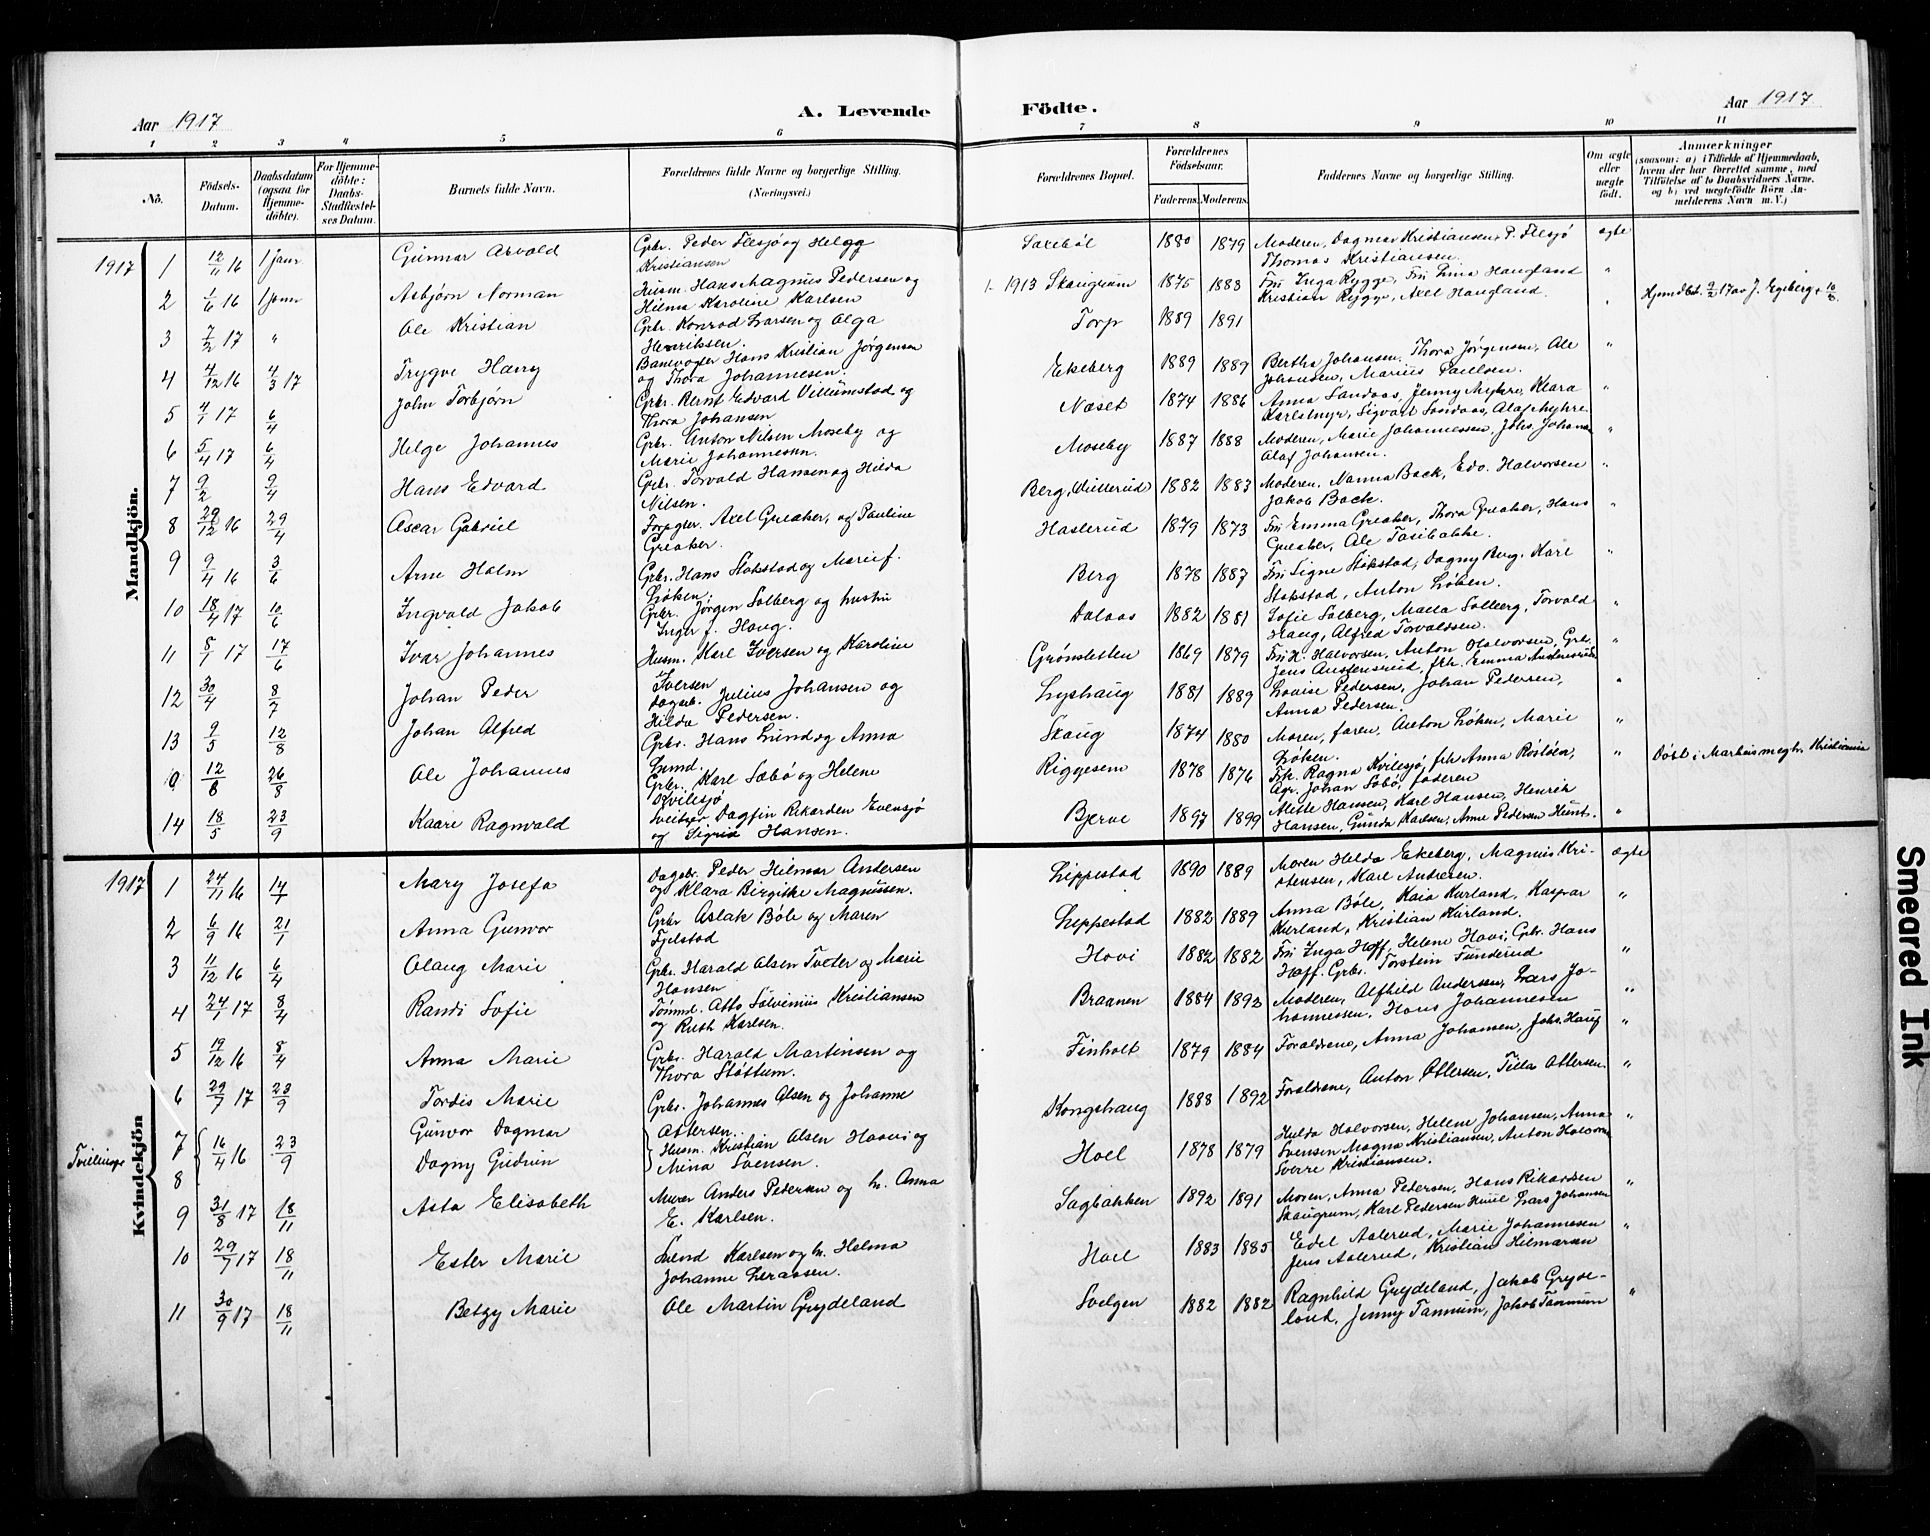 Aar 1917
A. Levende
Födte.
Aar 1917
1 2 3 4 5 6 7 8 9 10 11
No.
Födsels-
Datum.
Daabsdatum
(ogsaa for
Hjemme-
döbte).
For Hjemme-
döbte:
Daabs-
Stadfæstel-
ses Datum.
Barnets fulde Navn.
Forældrenes fulde Navne og borgerlige Stilling.
(Næringsvei.)
Forældrenes Bopæl.
Forældrenes
Födselsaar.
Faderens. Moderens.
Faddernes Navne og borgerlige Stilling.
Om ægte
eller
uægte
födt.
Anmærkninger
(saasom: a) i Tilfælde af Hjemmedaab,
hvem der har forrettet samme, med
Tilföielse af to Daabsvidners Navne.
og b) ved uægtefödte Börn An-
melderens Navn m. V.)
Mandkjön.
1917 1 12/11 16 1 janr Gunnar Arvold Grbr. Peder Flesjø og Helga
Kristiansen Saxebøl 1880 1879 Moderen, Dagmar Kristiansen, P. Flesjø
Thomas Kristiansen. ægte
2 1/6 16 1 janr Asbjørn Norman Husm. Hans Magnus Pedersen og
Hilma Karoline Karlsen 1913 Skaugrum 1875 1883 Fru Inga Rygge, Fru Lina Haugland
Kristian Rygge, Axel Haugland. "
3 7/2 17 " Ole Kristian Grbr. Konrad Larsen og Olga
Henriksen. Torp 1889 1891 " Hjemdbt. 9/2 17 av J. Egeberg + 10/2.
4 4/12 16 4/3 17 Trygve Harry Banevogter Hans Kristian Jørgensen
og Thora Johannesen. Ekeberg 1889 1889 Bertha Johansen, Thora Jørgensen, Ole
Johansen, Marius Paulsen. "
5 4/1 17 6/4 John Torbjørn Grbr. Bernt Edvard Villumstad og
Thora Johansen Næset 1874 1886 Anna Sandaas, Jenny Myhre, Klara
Karlsmyr, Sigvart Sandaas, Olaf Myhre. "
6 5/4 17 6/4 Helge Johannes Grbr. Anton Nilsen Moseby og
Marie Johannessen. Moseby 1887 1888 Moderen, Marie Johannessen, Johs. Johansen
Olaf Johansen. "
7 9/2 9/4 Hans Edvard Grbr. Torvald Hansen og Hilda
Nilsen. Berg, 1882 1883 Moderen, Nanna Back, Edv. Halvorsen
Jakob Back. "
8 29/12 16 29/4 Oscar Gabriel Forpgter. Axel Greaker, og Pauline
Greaker. Haslerud 1879 1873 Fru Emma Greaker, Thora Greaker, Hans
Greaker, Ole Tosebakke. "
9 9/4 16 3/6 Arne Holm Grbr. Hans Stokstad og Marie f.
Løken. Berg 1878 1887 Fru Signe Stokstad, Dagny Berg, Karl
Stokstad, Anton Løken. "
10 18/4 17 10/6 Ingvald Jakob Grbr. Jørgen Solberg og hustru
Inger f. Haug. Dalaas 1882 1881 Sofie Solberg, Maila Solberg, Torvald
Haug, Alfred Torvaldsen. "
11 8/1 17 17/6 Ivar Johannes Husm. Karl Iversen og Karoline
Iversen Grønsletten 1869 1879 Fru K. Halvorsen, Anton Halvorsen, Grb.
Jens Austensrud, frk. Emma Austensrud "
12 30/4 8/7 Johan Peder Dagarb. Julius Johansen og
Hilda Pedersen. Lyshaug 1881 1889 Louise Pedersen, Johan Pedersen,
Anna Pedersen. "
13 9/5 12/8 Johan Alfred Grbr. Hans Lund og Anna
Lund. Skaug 1874 1880 Moren, faren, Anton Løken, Marie
Løken. "
12/6 26/8 Ole Johannes Grbr. Karl Sæbø og Helene
Kvilesjø Riggesem 1878 1876 Frk. Ragna Kvilesjø, frk Anna Røstøen,
Agr. Johan Sæbø, faderen " Døbt i Markus megh. Kristiania
14 18/5 23/9 Kaare Ragnvald Sveitser Dagfin Rikardsen Evensjø
og Sigrid Hansen. Bjerve 1897 1899 Alette Hansen, Karl Hansen, Henrik
Hansen, Gunda Karlsen, Arne Pedersen Hunt. "
Kvindekjön
1917 1 24/11 16 14/1 Mary Josefa Dagabr. Peder Hilmar Andersen
og Klara Birgitte Magnussen. Lippestad 1890 1889 Moren Hilda Ekeberg, Magnus Kri-
stensen, Karl Andresen. ægte
2 6/9 16 21/1 Anna Gunvor Grbr Aslak Bøle og Maren
Fjelstad Lippestad 1882 1889 Anna Bøle, Kaia Kurland, Kaspar
Kurland, Kristian Kurland. "
3 11/12 16 6/4 Olaug Marie Grbr. Harald Olsen Tveter og Marie
Hansen Hovi 1882 1882 Fru Inga Hoff, Helene Hovi, Grbr. Hans
Hoff. Grbr. Torstein Funderud "
4 24/1 17 8/4 Randi Sofie Tømmd. Otto Sølvinius Kristiansen
og Ruth Karlsen. Braanen 1884 1892 Moderen, Alfhild Andersen, Lars Jo-
hannessen, Hans Johannesen "
5 19/12 16 8/4 Anna Marie Grbr. Harald Martinsen og
Thora Støttum. Finholt 1879 1884 Forældrene, Anna Johansen, Johs. Haug "
6 29/7 17 23/9 Tordis Marie Grbr. Johannes Olsen og Johanne
Ottersen. Kongshaug 1888 1892 Forældrene, Anton Ottersen, Tilla Ottersen. "
Tvillinge 7 8 16/4 16 23/9 Gunvor Dagmar
Dagny Gudrun Husm. Kristian Olsen Hovi og
Mina Svensen. Hoel 1878 1879 Hulda Halvorsen, Helene Johansen, Anna
Svensen Magna Kristiansen, Anton Halvorsen
Sverre Kristiansen. "
9 31/8 17 18/11 Asta Elisabeth Murer Anders Pedersen og h. Anna
E. Karlsen. Sagbakken 1892 1891 Moren, Anna Pedersen, Hans Rikardsen
Skaugrum, Karl Pedersen Huul Lars Johansen "
10 29/7 17 18/11 Ester Marie Lund Karlsen og h. Helma
Johanne Leraasen. Hoel 1883 1885 Edel Aalerud, Marie Johannesen
Jens Aalerud, Kristian Hilmarsen "
11 30/9 17 18/11 Betzy Marie Ole Martin Grydeland Svelgen 1882 1882 Ragnhild Grydeland, Jakob Gryde-
land, Jenny Tannum, Jakob Tannum "
Smeared Ink